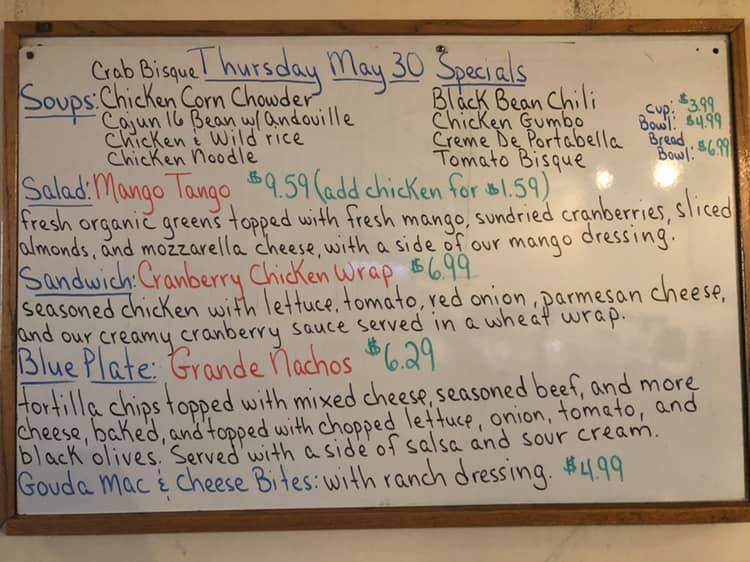 Thursday May 30 Specials
Crab Bisque
Soups: Chicken Corn Chowder
Cajun 16 Bean w/Andouille
Chicken & Wild rice
Chicken Noodle
Black Bean Chili
Chicken Gumbo
Creme De Portabella
Tomato Bisque
Cup: $3.99
Bowl: $4.99
Bread
Bowl: $6.99
Salad: Mango Tango $9.59 (add chicken for $1.59)
fresh organic greens topped with fresh mango, sundried cranberries, sliced
almonds, and mozzarella cheese, with a side of our mango dressing.
Sandwich: Cranberry Chicken Wrap $6.99
seasoned chicken with lettuce, tomato, red onion, parmesan cheese,
and our creamy cranberry sauce served in a wheat wrap.
Blue Plate: Grande Nachos $6.29
tortilla chips topped with mixed cheese, seasoned beef, and more
cheese, baked, and topped with chopped lettuce, onion, tomato, and
black olives. Served with a side of salsa and sour cream.
Gouda Mac & Cheese Bites: with ranch dressing. $4.99